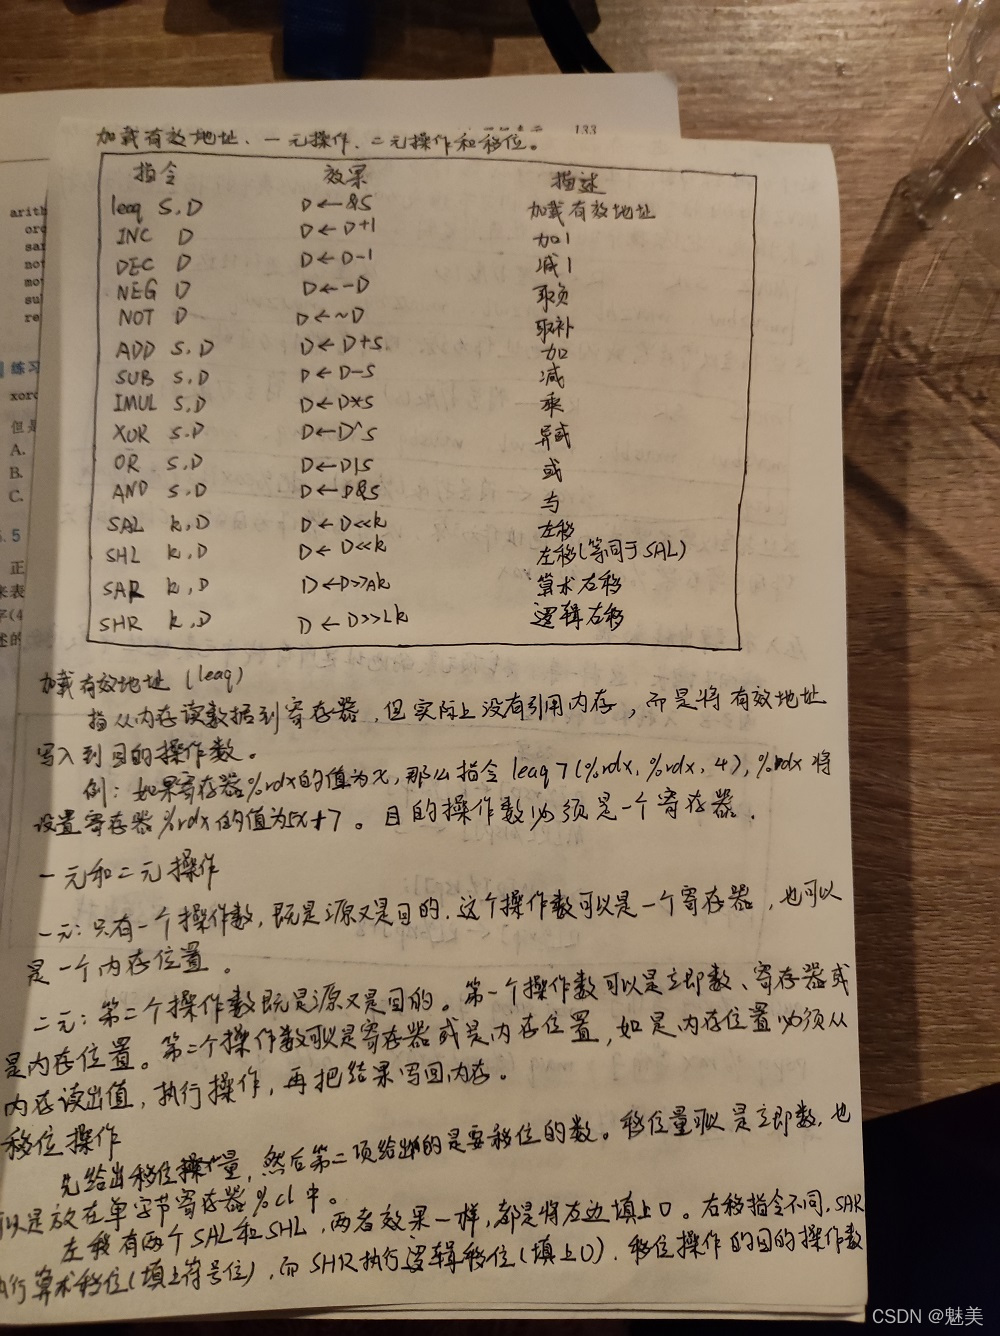 133
加载有效地址、一元操作、二元操作和移位。
指令 效果 描述
leaq S,D D←&S 加载有效地址
INC D D←D+1 加1
DEC D D←D-1 减1
NEG D D←-D 取负
NOT D D←~D 取补
ADD S,D D←D+S 加
SUB S,D D←D-S 减
IMUL S,D D←D*S 乘
XOR S,D D←D^S 异或
OR S,D D←D|S 或
AND S,D D←D&S 与
SAL k,D D←D<<k 左移
SHL k,D D←D<<k 左移(等同于SAL)
SAR k,D D←D>>Ak 算术右移
SHR k,D D←D>>Lk 逻辑右移
加载有效地址 (leaq)
指从内存读数据到寄存器,但实际上没有引用内存,而是将有效地址
写入到目的操作数。
例:如果寄存器%rdx的值为x,那么指令 leaq 7(%rdx,%rdx,4),%rdx 将
设置寄存器%rdx的值为5x+7。目的操作数必须是一个寄存器.
一元和二元操作
一元:只有一个操作数,既是源又是目的.这个操作数可以是一个寄存器,也可以
是一个内存位置。
二元:第二个操作数既是源又是目的。第一个操作数可以是立即数、寄存器或
是内存位置。第二个操作数可以是寄存器或是内存位置,如是内存位置必须从
内存读出值,执行操作,再把结果写回内存。
移位操作
先给出移位量,然后第二项给出的是要移位的数。移位量可以是立即数,也
可以是放在单字节寄存器%cl中。
左移有两个SAL和SHL,两者效果一样,都是将右边填上0。右移指令不同,SAR
执行算术移位(填上符号位),而SHR执行逻辑移位(填上0).移位操作的目的操作数
arith
sar
not
练习
xorq
但是
A.
B.
C.
5.5
正
来表
字(4
述的
CSDN @魅美